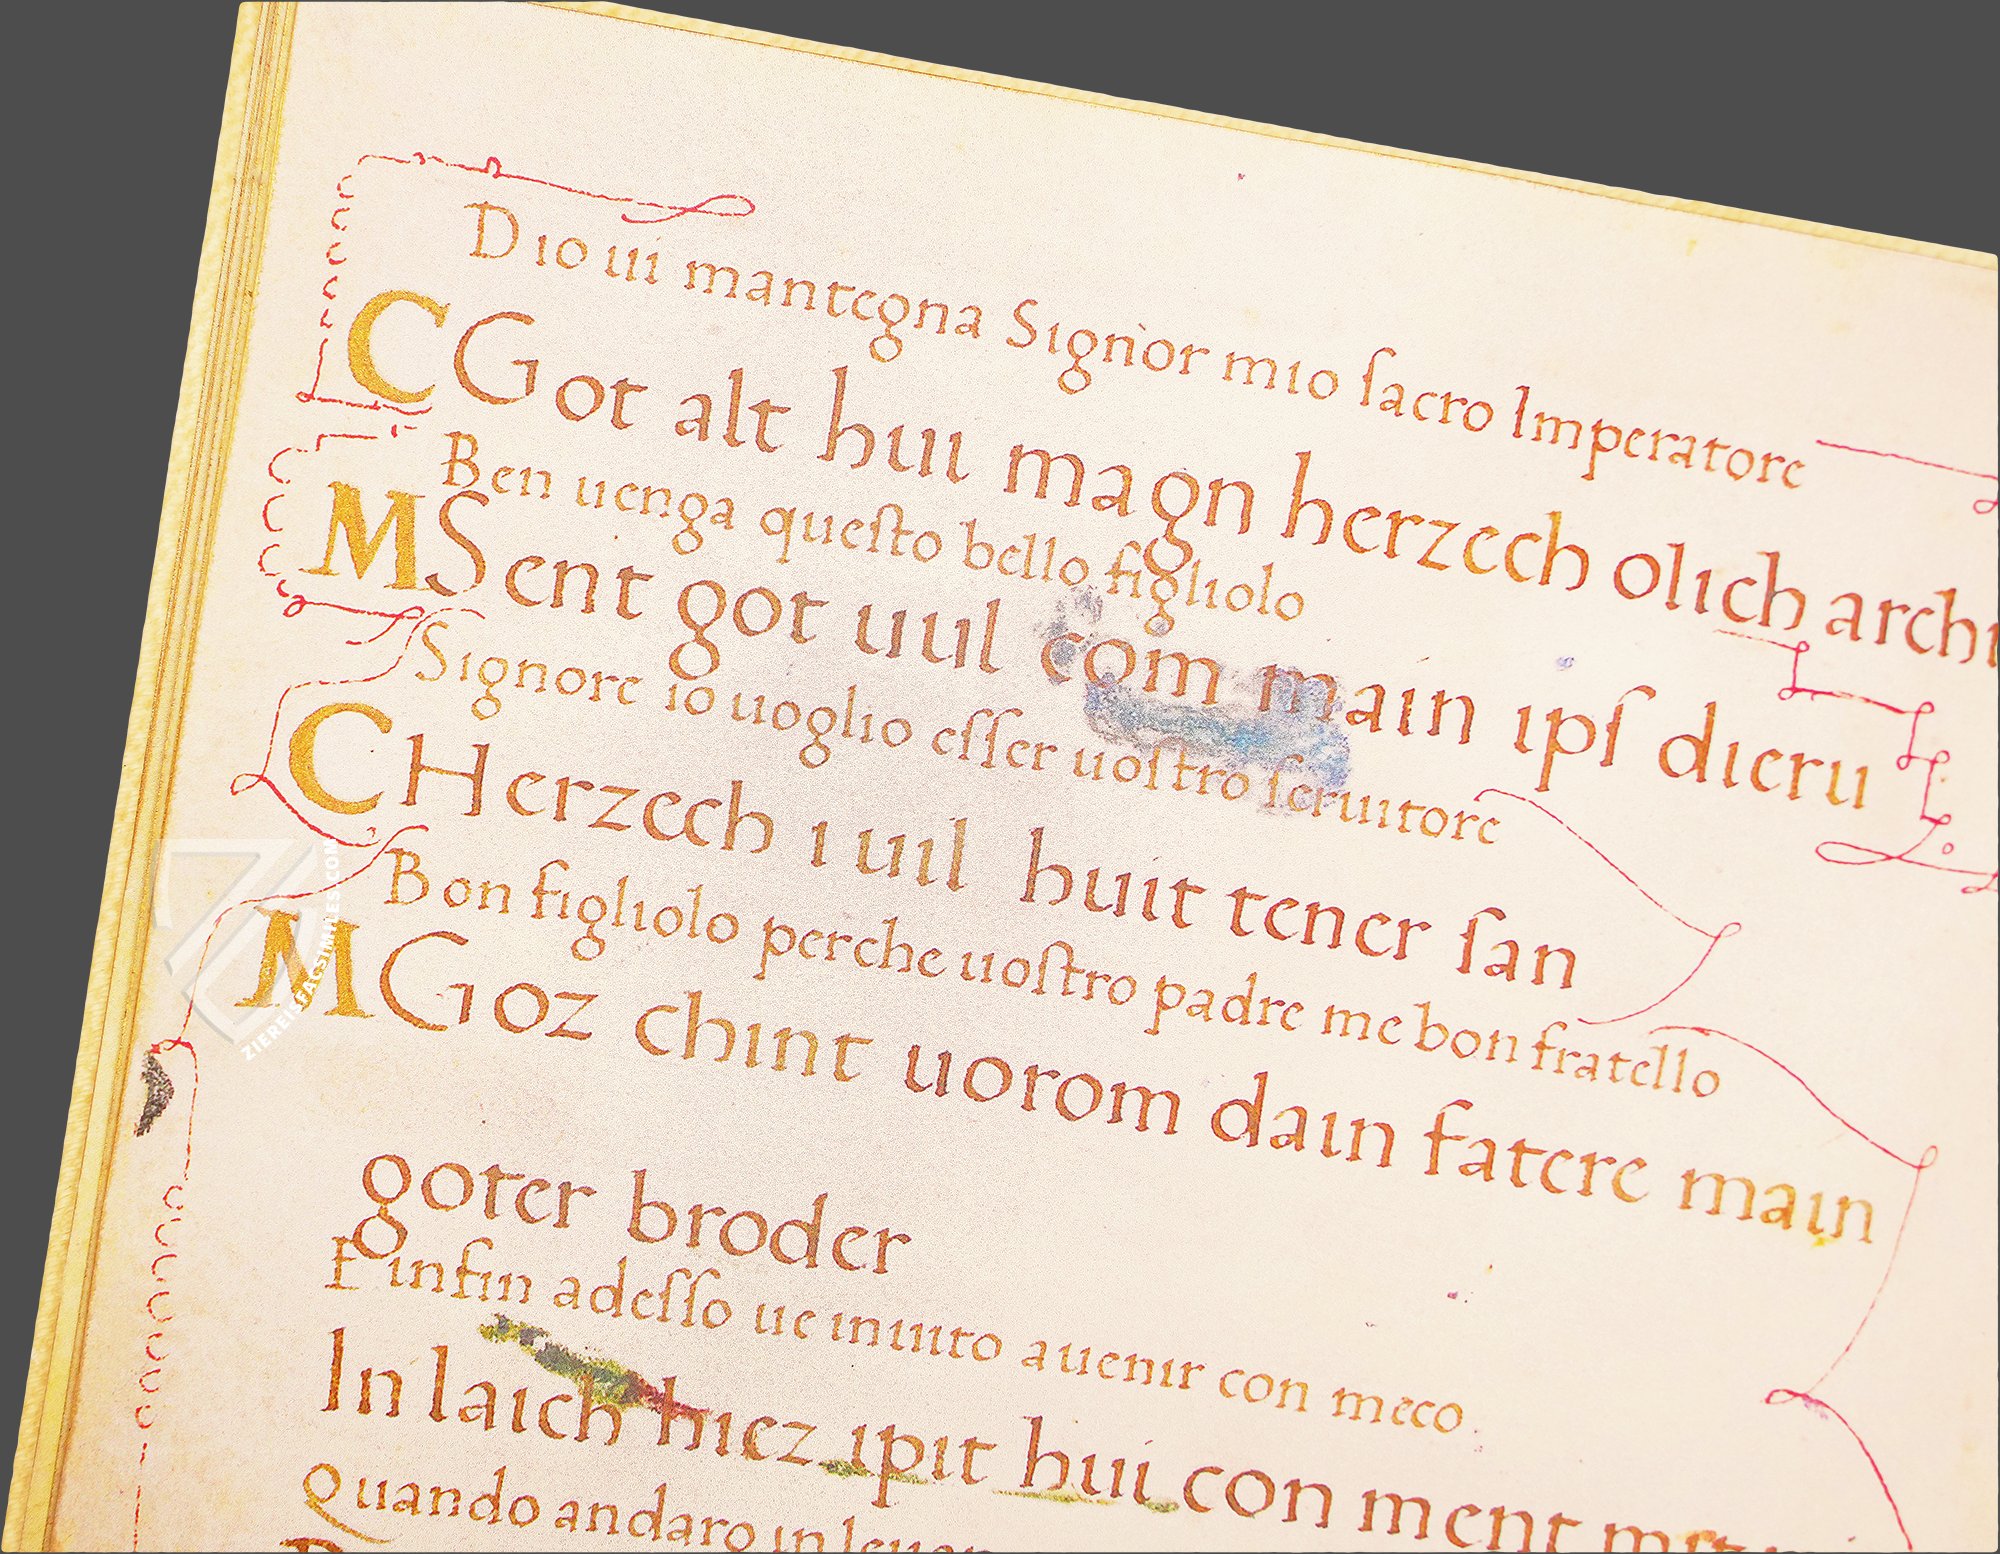 Dio ui mantegna Signor mio ſacro Imperatore
C Got alt hui magn herzech olich archi
Ben uenga queſto bello figliolo
M Sent got uuil com main ipſ dieru
Signore io uoglio eſſer uoſtro ſeruitore
C Herzech i uuil huit tener ſan
Bon figliolo perche uoſtro padre me bon fratello
M Goz chint uorom dain fatere main
goter broder
Finfin adeſſo ue inuito auenir con meco.
In laich hiez ipit hui con ment
Quando andaro in
ZIEREISFACSIMILES.COM